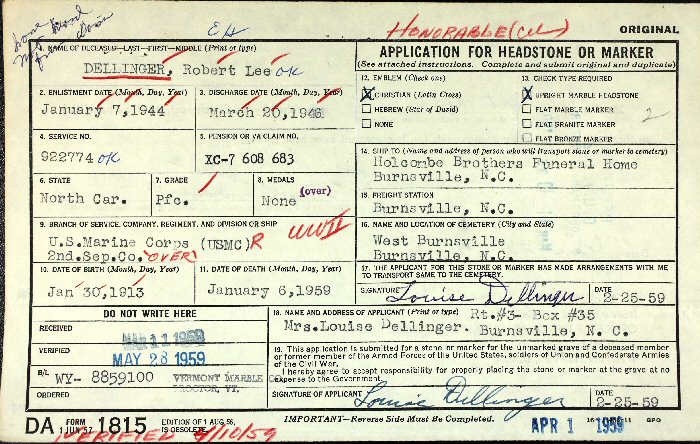 EH
HONORABLE (cel)
ORIGINAL
1. NAME OF DECEASED—LAST—FIRST—MIDDLE (Print or type)
DELLINGER, Robert Lee OK
2. ENLISTMENT DATE (Month, Day, Year)
January 7, 1944
3. DISCHARGE DATE (Month, Day, Year)
March 20, 1946
4. SERVICE NO.
922774 OK
5. PENSION OR VA CLAIM NO.
XC-7 608 683
6. STATE
North Car.
7. GRADE
Pfc.
8. MEDALS
(over)
None
9. BRANCH OF SERVICE, COMPANY, REGIMENT, AND DIVISION OR SHIP
WWII
U.S.Marine Corps (USMC) R
2nd.Sep.Co. OVER
10. DATE OF BIRTH (Month, Day, Year)
Jan 30, 1913
11. DATE OF DEATH (Month, Day, Year)
January 6, 1959
APPLICATION FOR HEADSTONE OR MARKER
(See attached instructions. Complete and submit original and duplicate)
12. EMBLEM (Check one)
X CHRISTIAN (Latin Cross)
HEBREW (Star of David)
NONE
13. CHECK TYPE REQUIRED
X UPRIGHT MARBLE HEADSTONE
FLAT MARBLE MARKER
FLAT GRANITE MARKER
FLAT BRONZE MARKER
2
14. SHIP TO (Name and address of person who will transport stone or marker to cemetery)
Holcombe Brothers Funeral Home
Burnsville, N.C.
15. FREIGHT STATION
Burnsville, N.C.
16. NAME AND LOCATION OF CEMETERY (City and State)
West Burnsville
Burnsville N.C.
17. THE APPLICANT FOR THIS STONE OR MARKER HAS MADE ARRANGEMENTS WITH ME
TO TRANSPORT SAME TO THE CEMETERY.
SIGNATURE Louise Dellinger
DATE
2-25-59
DO NOT WRITE HERE
RECEIVED
MAR 11 1959
VERIFIED
MAY 28 1959
B/L
WY- 8859100
VERMONT MARBLE CO.
PROCTOR, VT.
ORDERED
18. NAME AND ADDRESS OF APPLICANT (Print or type) Rt.#3- Box #35
Mrs.Louise Dellinger. Burnsville, N. C.
19. This application is submitted for a stone or marker for the unmarked grave of a deceased member
or former member of the Armed Forces of the United States, soldiers of Union and Confederate Armies
of the Civil War.
I hereby agree to accept responsibility for properly placing the stone or marker at the grave at no
expense to the Government.
SIGNATURE OF APPLICANT
Louise Dellinger
DATE
2-25-59
DA FORM 1 JUN 57 1815
EDITION OF 1 AUG 56,
IS OBSOLETE.
IMPORTANT—Reverse Side Must Be Completed.
APR 1 1959
GPO
VERIFIED 4/10/59